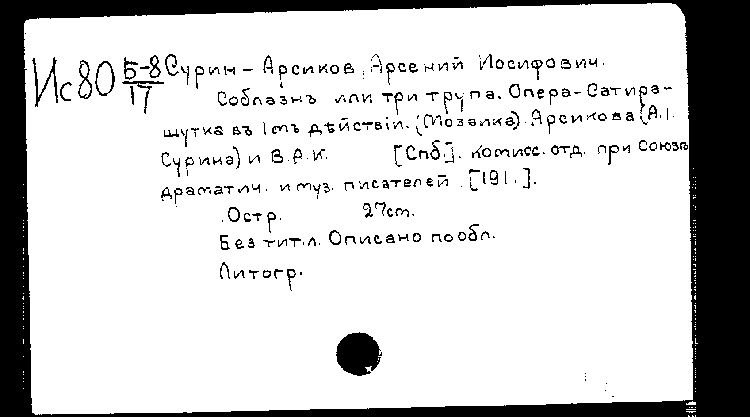 Ис80 Б-8/17 Сурин-Арсиков, Арсений Иосифович.
Соблазнъ или три трупа. Опера-Сатира-
шутка въ 1мъ дѣйствіи. (Мозаика). Арсикова (А.І.
Сурина) и В.А.К. [Спб.]. Комисс. отд. при Союзѣ
драматич. и муз. писателей. [191.].
.Остр. 27cm.
Без тит.л. Описано по обл.
Литогр.